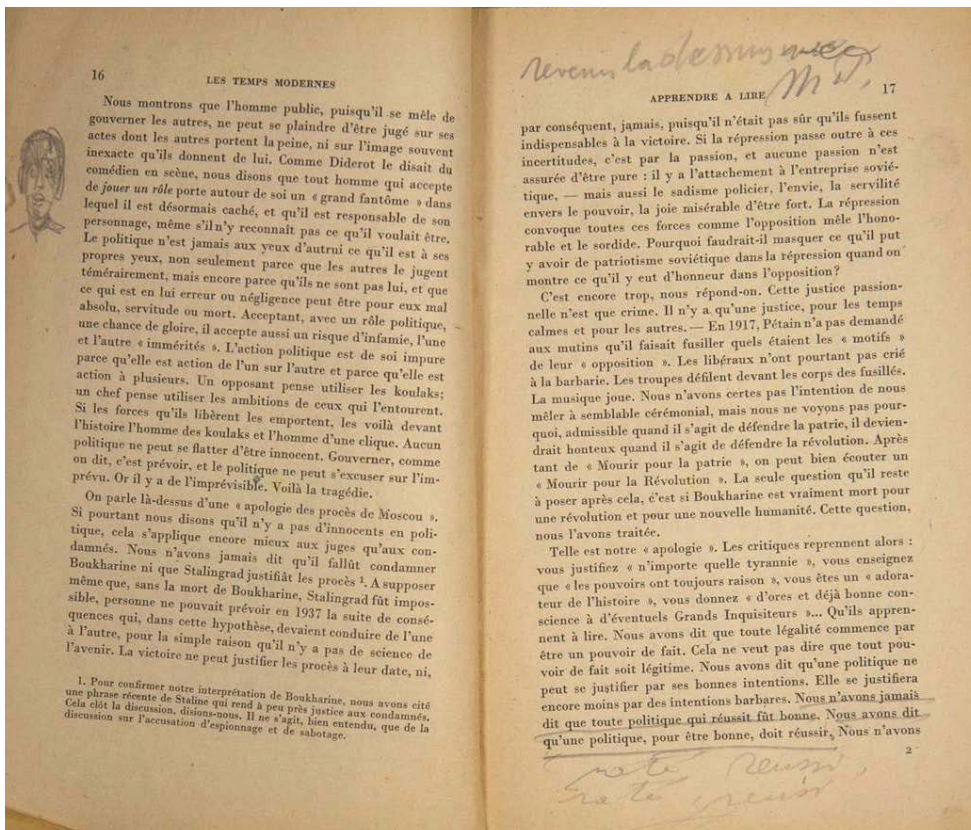 16
LES TEMPS MODERNES
Nous montrons que l'homme public, puisqu'il se mêle de
gouverner les autres, ne peut se plaindre d'être jugé sur ses
actes dont les autres portent la peine, ni sur l'image souvent
inexacte qu'ils donnent de lui. Comme Diderot le disait du
comédien en scène, nous disons que tout homme qui accepte
de jouer un rôle porte autour de soi un « grand fantôme » dans
lequel il est désormais caché, et qu'il est responsable de son
personnage, même s'il n'y reconnaît pas ce qu'il voulait être.
Le politique n'est jamais aux yeux d'autrui ce qu'il est à ses
propres yeux, non seulement parce que les autres le jugent
témérairement, mais encore parce qu'ils ne sont pas lui, et que
ce qui est en lui erreur ou négligence peut être pour eux mal
absolu, servitude ou mort. Acceptant, avec un rôle politique,
une chance de gloire, il accepte aussi un risque d'infamie, l'une
et l'autre « immérités ». L'action politique est de soi impure
parce qu'elle est action de l'un sur l'autre et parce qu'elle est
action à plusieurs. Un opposant pense utiliser les koulaks;
un chef pense utiliser les ambitions de ceux qui l'entourent.
Si les forces qu'ils libèrent les emportent, les voilà devant
l'histoire l'homme des koulaks et l'homme d'une clique. Aucun
politique ne peut se flatter d'être innocent. Gouverner, comme
on dit, c'est prévoir, et le politique ne peut s'excuser sur l'im-
prévu. Or il y a de l'imprévisible. Voilà la tragédie.
On parle là-dessus d'une « apologie des procès de Moscou ».
Si pourtant nous disons qu'il n'y a pas d'innocents en poli-
tique, cela s'applique encore mieux aux juges qu'aux con-
damnés. Nous n'avons jamais dit qu'il fallût condamner
Boukharine ni que Stalingrad justifiât les procès 1. A supposer
même que, sans la mort de Boukharine, Stalingrad fût impos-
sible, personne ne pouvait prévoir en 1937 la suite de consé-
quences qui, dans cette hypothèse, devaient conduire de l'une
à l'autre, pour la simple raison qu'il n'y a pas de science de
l'avenir. La victoire ne peut justifier les procès à leur date, ni,
1. Pour confirmer notre interprétation de Boukharine, nous avons cité
une phrase récente de Staline qui rend à peu près justice aux condamnés.
Cela clôt la discussion, disions-nous. Il ne s'agit, bien entendu, que de la
discussion sur l'accusation d'espionnage et de sabotage.
revenir la dessus
APPRENDRE A LIRE
17
par conséquent, jamais, puisqu'il n'était pas sûr qu'ils fussent
indispensables à la victoire. Si la répression passe outre à ces
incertitudes, c'est par la passion, et aucune passion n'est
assurée d'être pure : il y a l'attachement à l'entreprise sovié-
tique, — mais aussi le sadisme policier, l'envie, la servilité
envers le pouvoir, la joie misérable d'être fort. La répression
convoque toutes ces forces comme l'opposition mêle l'hono-
rable et le sordide. Pourquoi faudrait-il masquer ce qu'il put
y avoir de patriotisme soviétique dans la répression quand on
montre ce qu'il y eut d'honneur dans l'opposition?
C'est encore trop, nous répond-on. Cette justice passion-
nelle n'est que crime. Il n'y a qu'une justice, pour les temps
calmes et pour les autres. — En 1917, Pétain n'a pas demandé
aux mutins qu'il faisait fusiller quels étaient les « motifs »
de leur « opposition ». Les libéraux n'ont pourtant pas crié
à la barbarie. Les troupes défilent devant les corps des fusillés.
La musique joue. Nous n'avons certes pas l'intention de nous
mêler à semblable cérémonial, mais nous ne voyons pas pour-
quoi, admissible quand il s'agit de défendre la patrie, il devien-
drait honteux quand il s'agit de défendre la révolution. Après
tant de « Mourir pour la patrie », on peut bien écouter un
« Mourir pour la Révolution ». La seule question qu'il reste
à poser après cela, c'est si Boukharine est vraiment mort pour
une révolution et pour une nouvelle humanité. Cette question,
nous l'avons traitée.
Telle est notre « apologie ». Les critiques reprennent alors :
vous justifiez « n'importe quelle tyrannie », vous enseignez
que « les pouvoirs ont toujours raison », vous êtes un « adora-
teur de l'histoire », vous donnez « d'ores et déjà bonne con-
science à d'éventuels Grands Inquisiteurs »... Qu'ils appren-
nent à lire. Nous avons dit que toute légalité commence par
être un pouvoir de fait. Cela ne veut pas dire que tout pou-
voir de fait soit légitime. Nous avons dit qu'une politique ne
peut se justifier par ses bonnes intentions. Elle se justifiera
encore moins par des intentions barbares. Nous n'avons jamais
dit que toute politique qui réussit fût bonne. Nous avons dit
qu'une politique, pour être bonne, doit réussir. Nous n'avons
2
raté reussi
raté